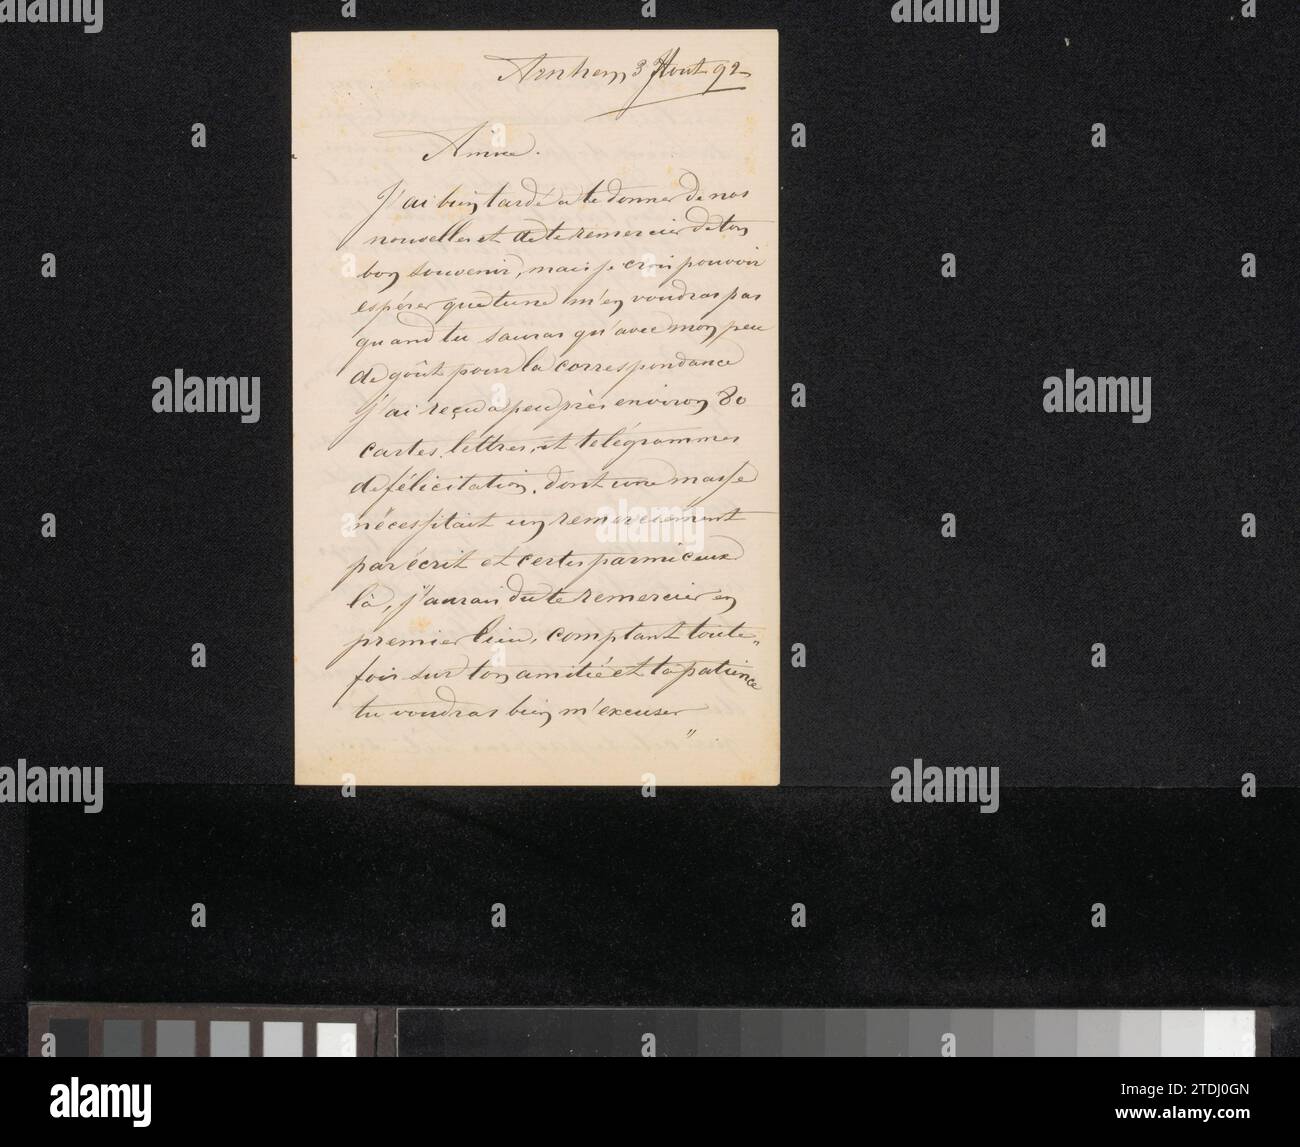 Arnhem, 3 Aout 92
Aimée.
J'ai bien tardé a te donner de nos
nouvelles et de te remercier de ton
bon souvenir, mais je crois pouvoir
espérer que tu ne m'en voudras pas
quand tu sauras qu'avec mon peu
de goût pour la correspondance
j'ai reçu a peu près environ 80
cartes, lettres, et telégrammes
de félicitation, dont une masse
nécessitait un remerciement
par écrit et certes parmi ceux
là, j'aurais du te remercier en
premier lieu, comptant toute=
fois sur ton amitié et ta patience
tu voudras bien m'excuser
"
alamy
www.alamy.com
Image ID: 2TDJ0GN